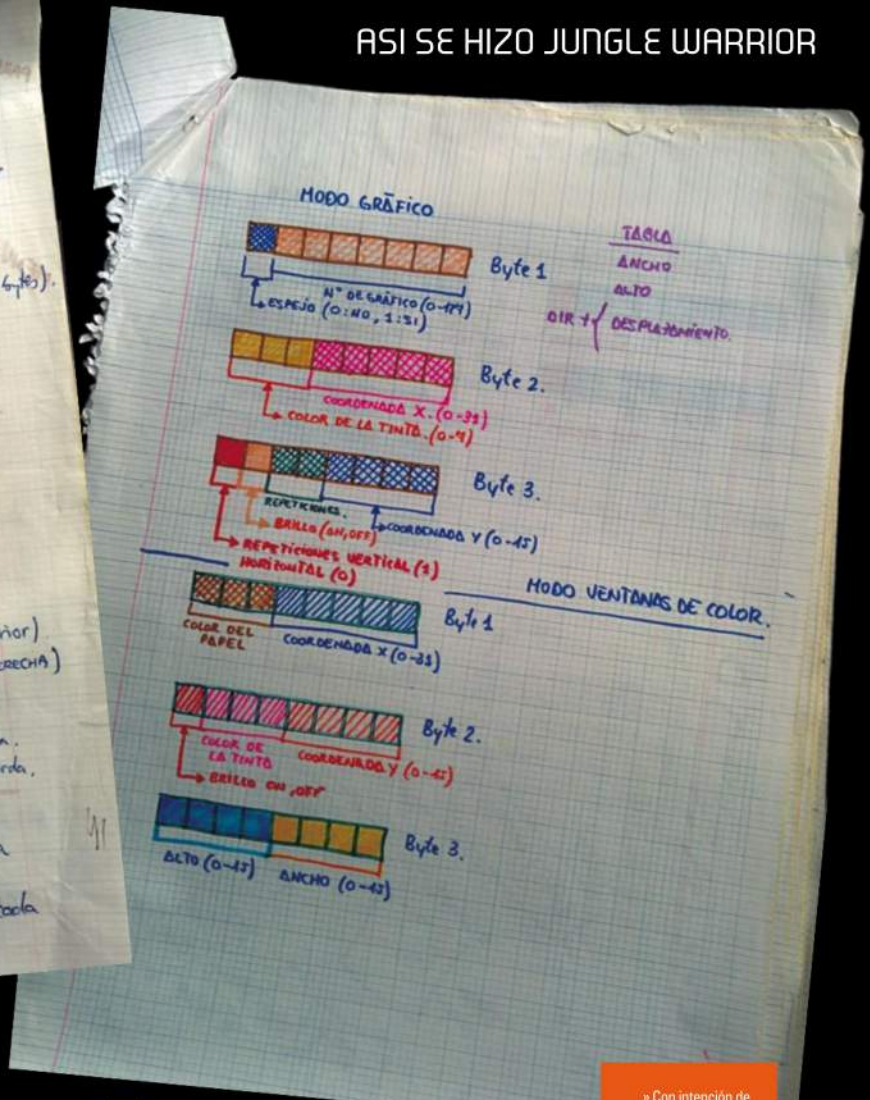 ASI SE HIZO JUNGLE WARRIOR
MODO GRÁFICO
Byte 1
Nº DE GRÁFICO
ESPEJO (0:NO, 1:SI)
TABLA
ANCHO
ALTO
DIR + { DESPLAZAMIENTO
Byte 2.
COORDENADA X. (0-31)
COLOR DE LA TINTA. (0-7)
Byte 3.
REPETICIONES.
BRILLO (ON, OFF)
COORDENADA Y (0-15)
REPETICIONES VERTICAL (1)
HORIZONTAL (0)
MODO VENTANAS DE COLOR.
Byte 1
COLOR DEL
PAPEL
COORDENADA X (0-31)
Byte 2.
COLOR DE
LA TINTA
COORDENADA Y (0-15)
BRILLO ON, OFF
Byte 3.
ALTO (0-15)
ANCHO (0-15)
bytes).
RECHA)
» Con intención de